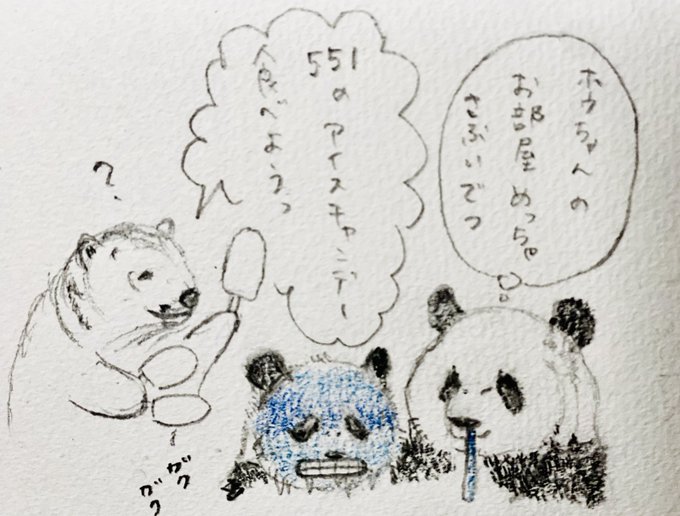 ホウちゃんの
お部屋めっちゃ
さぶいでつ
551のアイスキャンデー
食べようっ
?
ガク
ガク